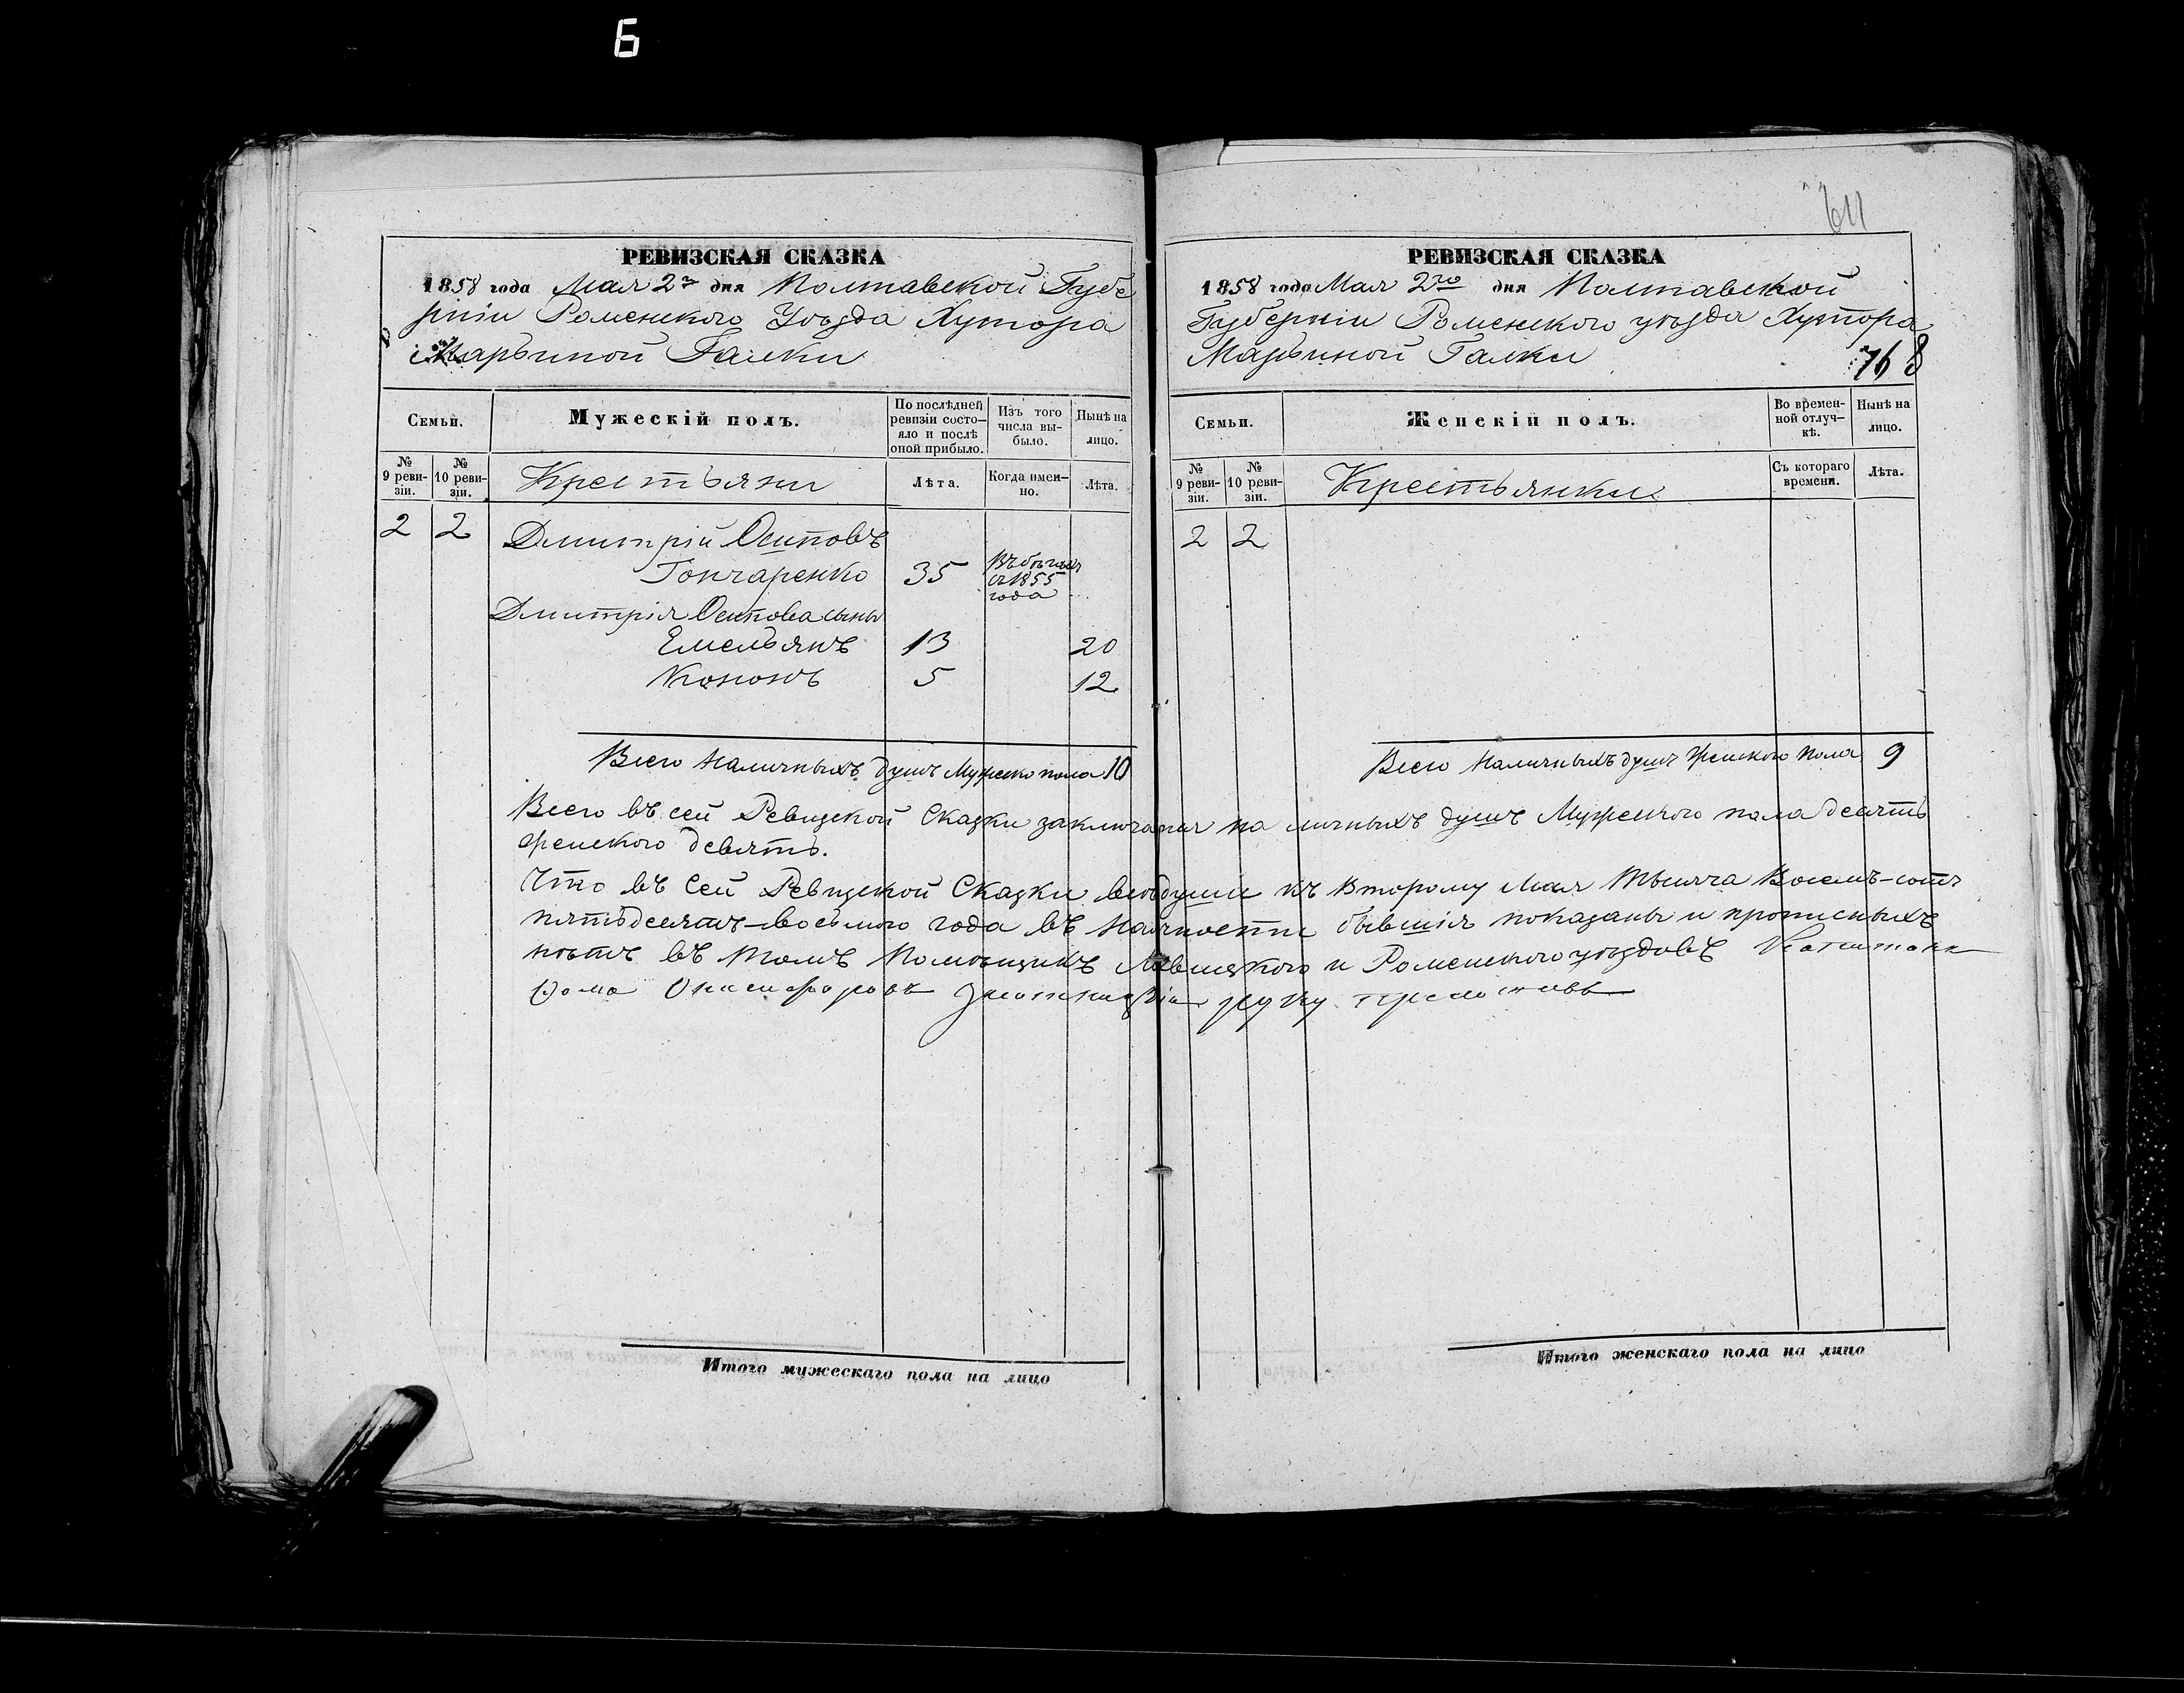 Б
РЕВИЗСКАЯ СКАЗКА
1858 года Мая 2го дня Полтавской Губе
рніи Роменского Уѣзда Хутора
Марьиной Галки
Семьи.
Мужескій полъ.
По послѣдней ревизіи состо-яло и послѣ оной прибыло.
Изъ того числа вы-было.
Нынѣ на лицо.
№ 9 реви-зіи.
№ 10 реви-зіи.
Крестьяни
Лѣта.
Когда имен-но.
Лѣта.
2 2 Дмитрій Осиповъ
Гончаренко 35 Въ бѣгахъ
съ 1855
года
Дмитрія Осипова сыны
Емельянъ 13 20
Кононъ 5 12
Всего наличныхъ душъ Мужеско пола 10
641
РЕВИЗСКАЯ СКАЗКА
1858 года Мая 2го дня Полтавской
Губерніи Роменского уѣзда Хутора
Марьиной Галки
768
Семьи.
Женскій полъ.
Во времен-ной отлуч-кѣ.
Нынѣ на лицо.
№ 9 реви-зіи.
№ 10 реви-зіи.
Крестьянки
Съ котораго времени.
Лѣта.
2 2
Всего наличныхъ душъ женского пола 9
Всего въ сей Ревизской Сказки заключается на личныхъ душъ Мужеского пола десять
женского девять.
Что въ сей Ревизской Сказки всѣ души къ второму Мая тысяча восемь-сотъ
пятьдесятъ-восьмого года въ наличности бывшія показаны и прописныхъ
нѣтъ въ томъ Помѣщикъ и Роменского уѣздовъ
Фома руку приложовъ
Итого мужескаго пола на лицо
Итого женскаго пола на лицо